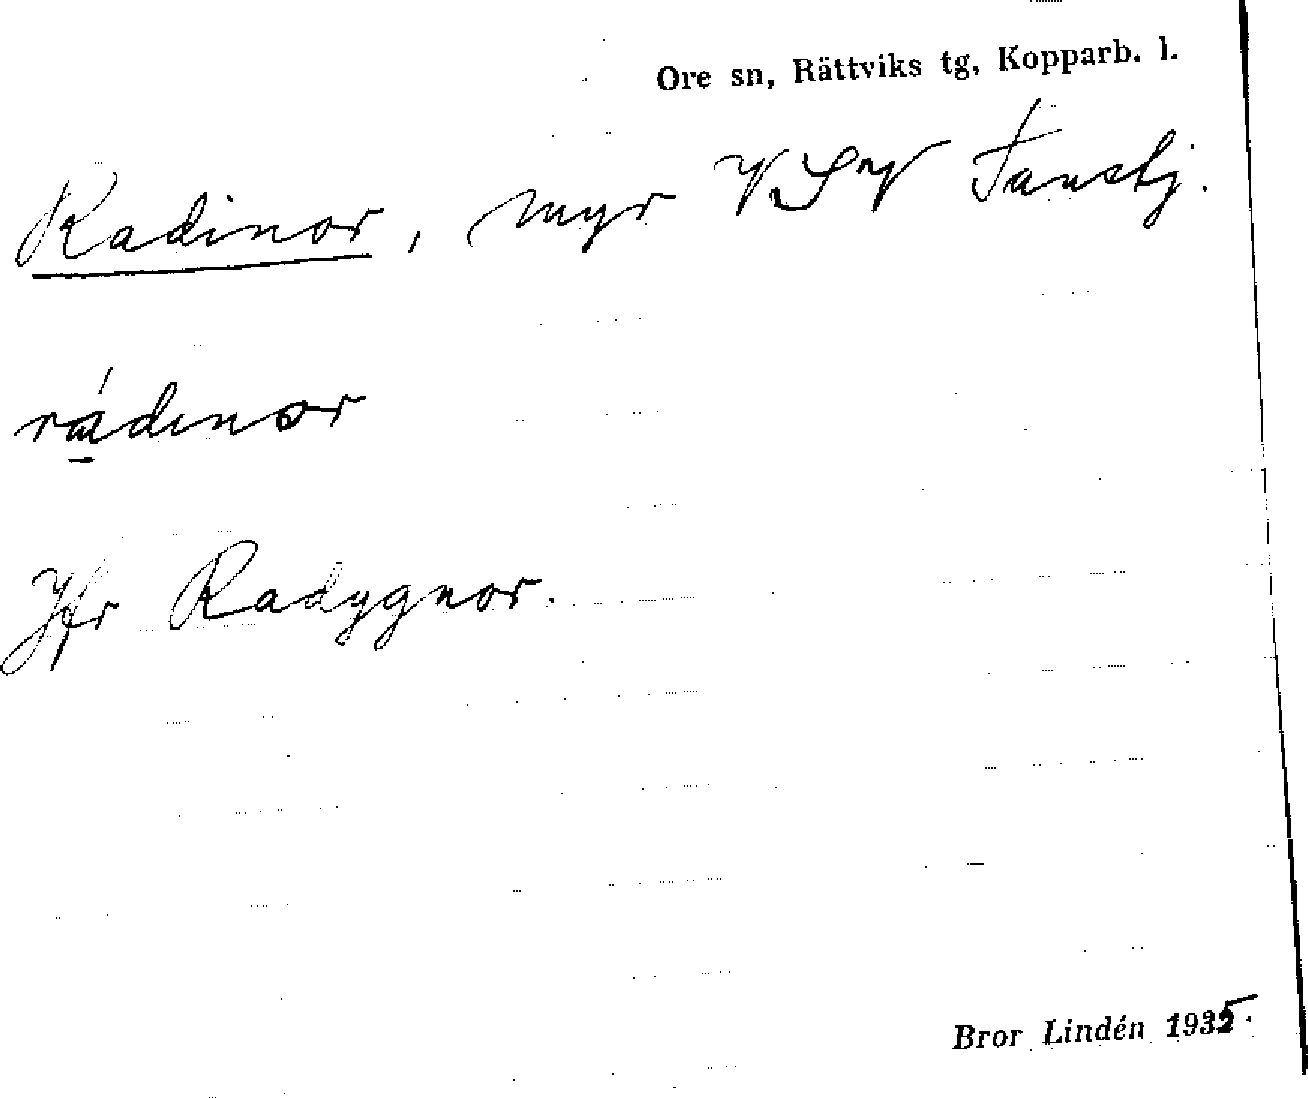 Ore sn, Rättviks tg, Kopparb. l.
Radinor, myr VSV Fansbj.
rádinor
Jfr Radygnor.
Bror Lindén 1935.